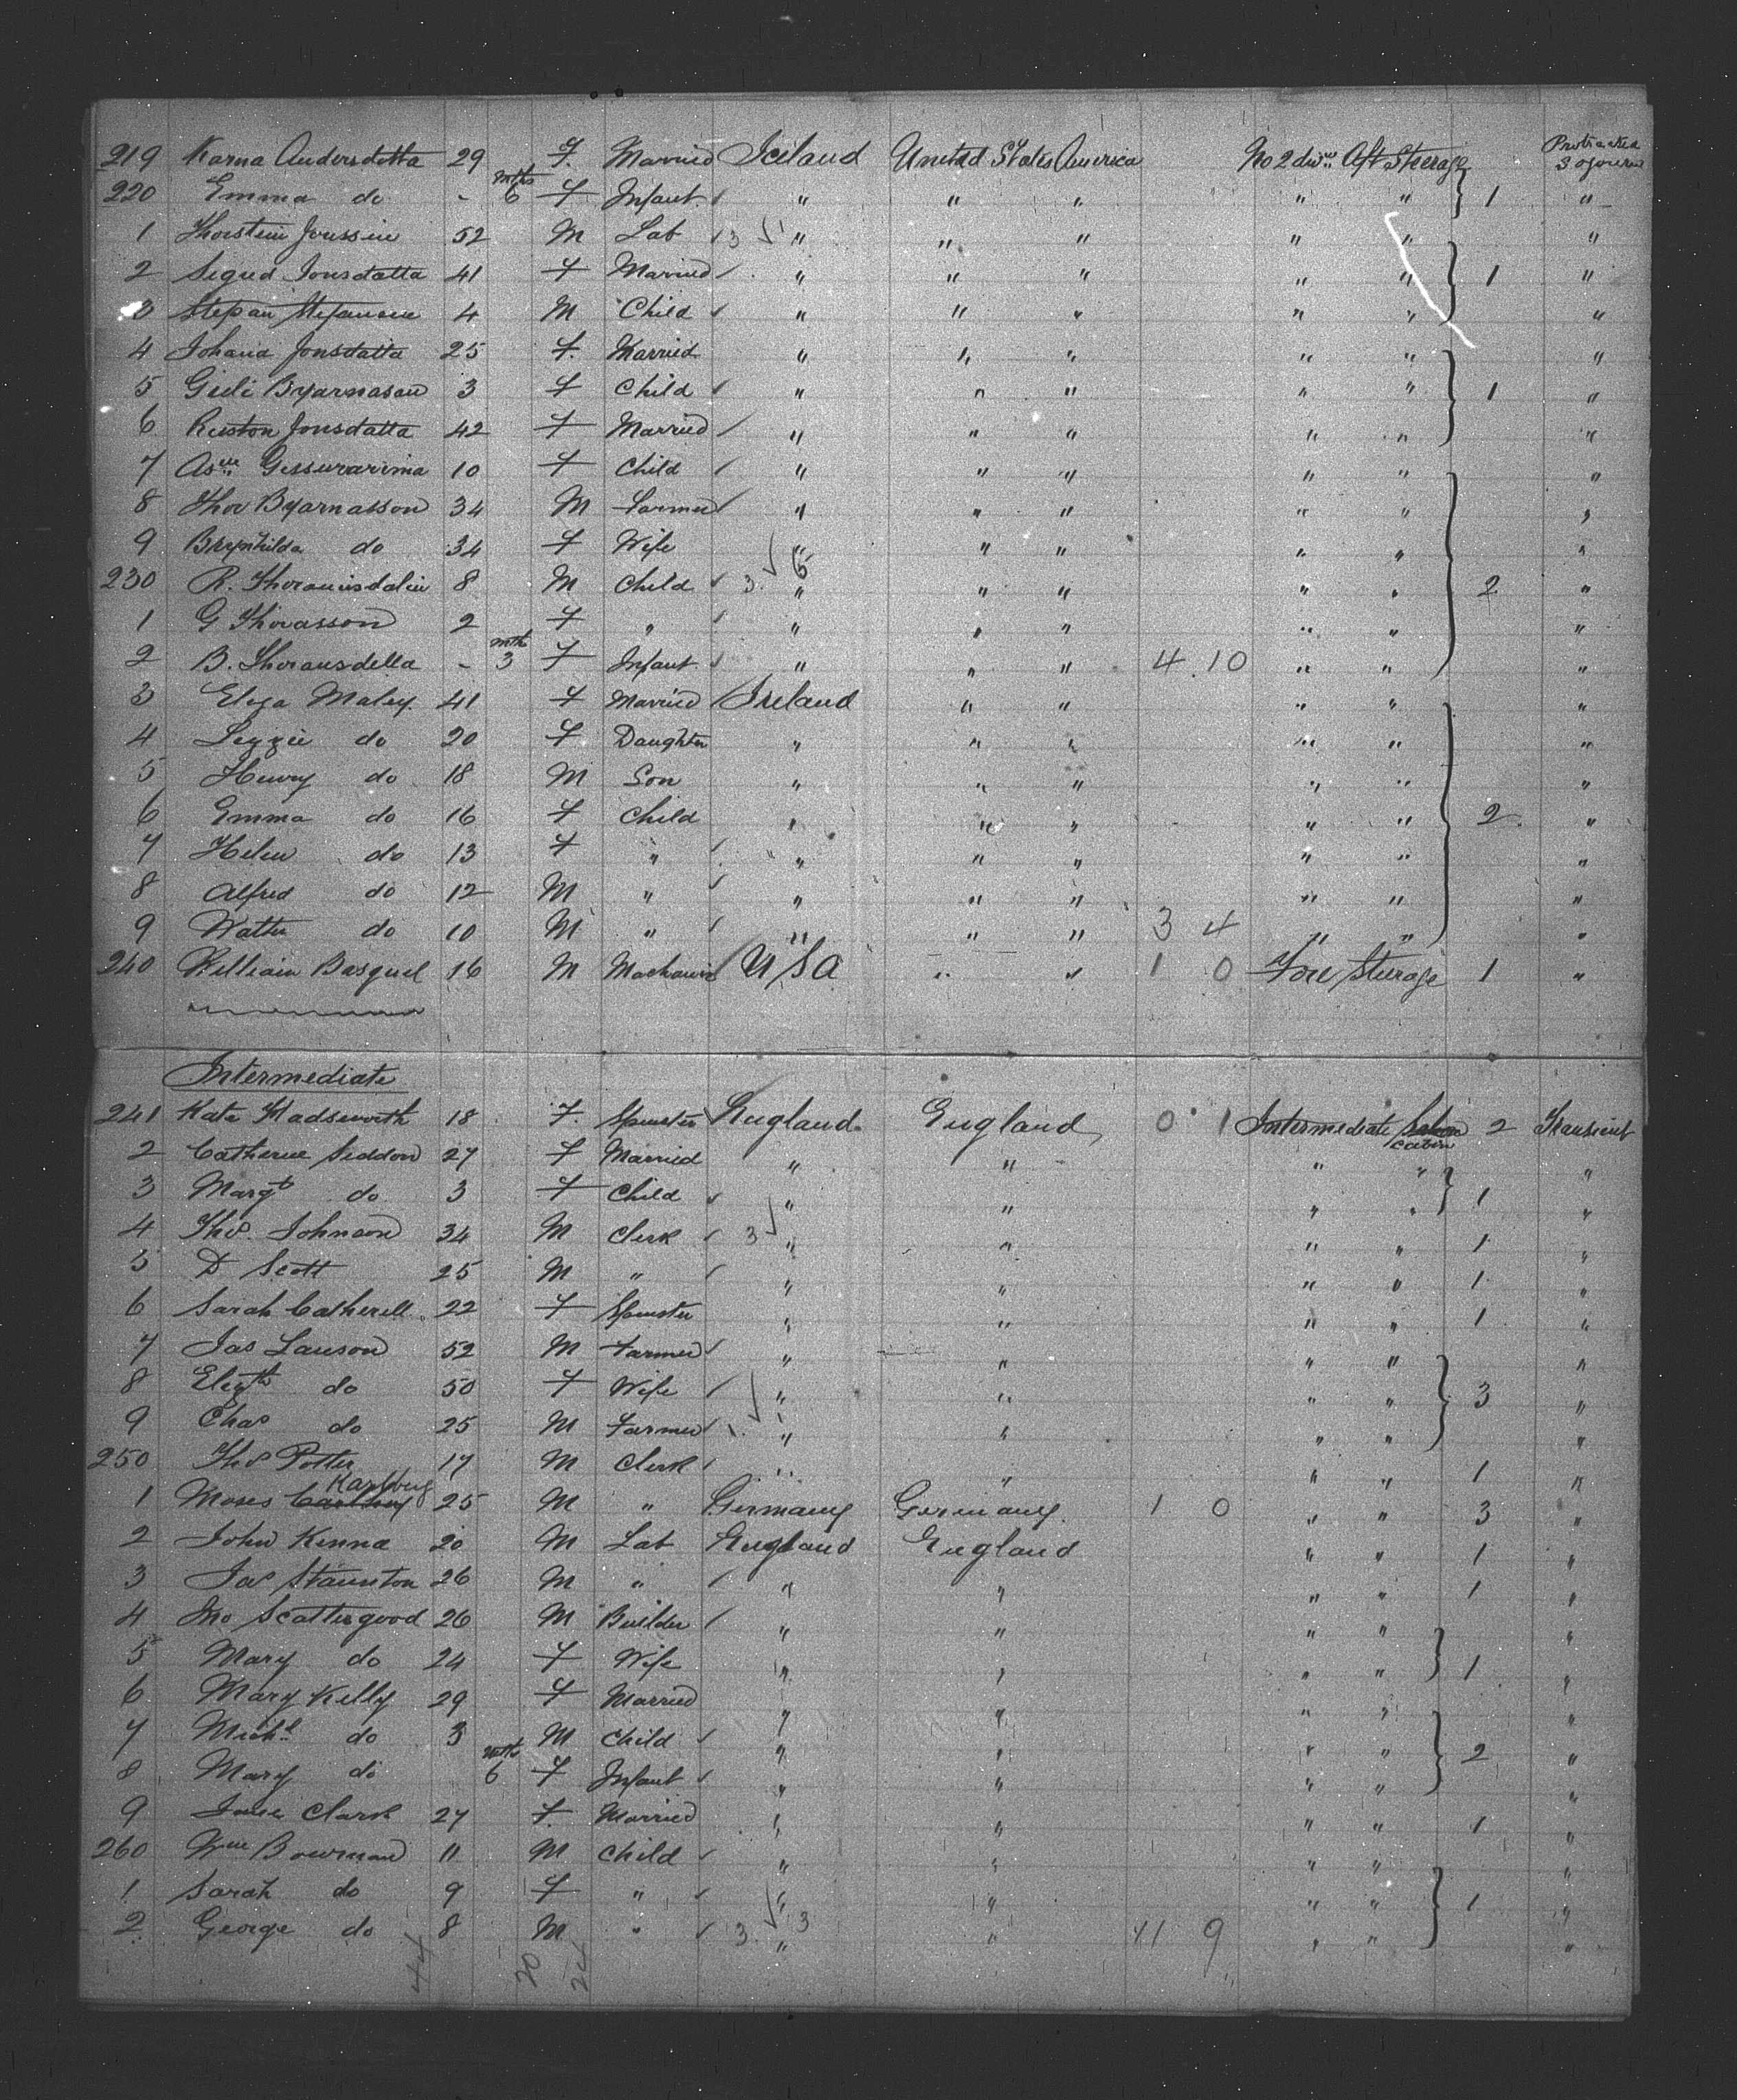 219 Karna Andersdotta 29 F. Married Iceland United States America No 2 divn. Aft Steerage Protracted Sojourn
220 Emma do - mths 6 F Infant " " " " " 1 "
1 Thorstein Jonssen 52 M Lab 3 " " " " " "
2 Sigud Jonsdatta 41 F Married " " " " " 1 "
3 Stepan Stefansen 4 M Child " " " " " "
4 Johana Jonsdatta 25 F. Married " " " " " "
5 Gidi Byarnason 3 F Child " " " " " 1 "
6 Reiston Jonsdatta 42 F Married " " " " " "
7 Gessurarima 10 F Child " " " " " "
8 Thor Byarnasson 34 M Farmer " " " " " "
9 Brynhilda do 34 F Wife " " " " " "
230 R. 8 M Child 3. 5 " " " " " 2 "
1 G Thorasson 2 F " " " " " " "
2 B. Thoransdella - mth 3 F Infant " " " 4 10 " " "
3 Eliza Maley 41 F Married Ireland " " " " "
4 Lizzie do 20 F Daughter " " " " " "
5 Henry do 18 M Son " " " " " "
6 Emma do 16 F Child " " " " " 2 "
7 Helen do 13 F " " " " " " "
8 Alfred do 12 M " " " " " " "
9 Walter do 10 M " " " " 3 4 " " "
240 William Basquel 16 M U S A " " 1 0 Fore Steerage 1 "
Intermediate
241 Kate Wadsworth 18 F. Spinster England England 0 1 Intermediate Saloon cabin 2 Transient
2 Catherine Seddon 27 F Married " " " " "
3 Margt do 3 F Child " " " " 1 "
4 Thos Johnson 34 M Clerk 3 " " " " 1 "
5 D Scott 25 M " " " " " 1 "
6 Sarah Catherell 22 F Spinster " " " " 1 "
7 Jas Lawson 52 M Farmer " " " " "
8 Elizth do 50 F Wife " " " " 3 "
9 Chas do 25 M Farmer " " " " "
250 Thos Potter 17 M Clerk " " " " 1 "
Karlsberg
1 Moses 25 M " Germany Germany 1 0 " " 3 "
2 John Kenna 20 M Lab England England " " 1 "
3 Jas Staunton 26 M " " " " " 1 "
4 Jno Scattergood 26 M Builder " " " " "
5 Mary do 24 F Wife " " " " 1 "
6 Mary Kelly 29 F Married " " " " "
7 Michl do 3 M Child " " " " 2 "
8 Mary do mths 6 F Infant " " " " "
9 Jane Clark 27 F. Married " " " " 1 "
260 Wm Bowman 11 M Child " " " " "
1 Sarah do 9 F " " " " " 1 "
2 George do 8 M " 3 3 " " 11 9 " " "
44 20 24